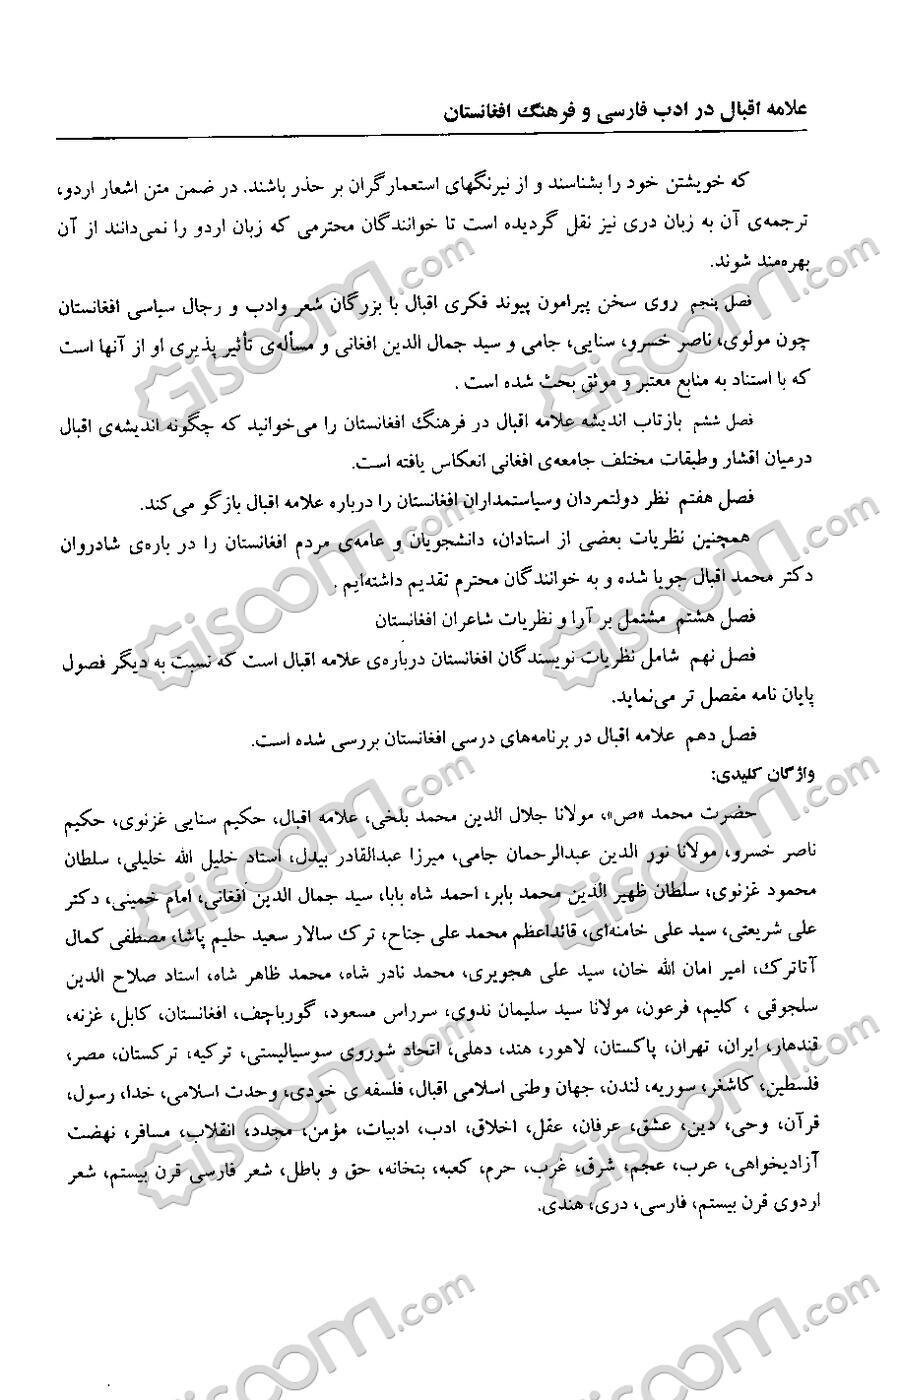 علامه اقبال در ادب فارسی و فرهنگ افغانستان
که خویشتن خود را بشناسند و از نیرنگهای استعمارگران بر حذر باشند. در ضمن متن اشعار اردو،
ترجمه‌ی آن به زبان دری نیز نقل گردیده است تا خوانندگان محترمی که زبان اردو را نمی‌دانند از آن
بهره‌مند شوند.
فصل پنجم روی سخن پیرامون پیوند فکری اقبال با بزرگان شعر وادب و رجال سیاسی افغانستان
چون مولوی، ناصر خسرو، سنایی، جامی و سید جمال الدین افغانی و مسأله‌ی تأثیر پذیری او از آنها است
که با استناد به منابع معتبر و موثق بحث شده است .
فصل ششم بازتاب اندیشه علامه اقبال در فرهنگ افغانستان را می‌خوانید که چگونه اندیشه‌ی اقبال
درمیان اقشار وطبقات مختلف جامعه‌ی افغانی انعکاس یافته است.
فصل هفتم نظر دولتمردان وسیاستمداران افغانستان را درباره علامه اقبال بازگو می‌کند.
همچنین نظریات بعضی از استادان، دانشجویان و عامه‌ی مردم افغانستان را در باره‌ی شادروان
دکتر محمد اقبال جویا شده و به خوانندگان محترم تقدیم داشته‌ایم .
فصل هشتم مشتمل بر آرا و نظریات شاعران افغانستان
فصل نهم شامل نظریات نویسندگان افغانستان درباره‌ی علامه اقبال است که نسبت به دیگر فصول
پایان نامه مفصل تر می‌نماید.
فصل دهم علامه اقبال در برنامه‌های درسی افغانستان بررسی شده است.
واژگان کلیدی:
حضرت محمد «ص»، مولانا جلال الدین محمد بلخی، علامه اقبال، حکیم سنایی غزنوی، حکیم
ناصر خسرو، مولانا نور الدین عبدالرحمان جامی، میرزا عبدالقادر بیدل، استاد خلیل الله خلیلی، سلطان
محمود غزنوی، سلطان ظهیر الدین محمد بابر، احمد شاه بابا، سید جمال الدین افغانی، امام خمینی، دکتر
علی شریعتی، سید علی خامنه‌ای، قائداعظم محمد علی جناح، ترک سالار سعید حلیم پاشا، مصطفی کمال
آتاترک، امیر امان الله خان، سید علی هجویری، محمد نادر شاه، محمد ظاهر شاه، استاد صلاح الدین
سلجوقی ، کلیم، فرعون، مولانا سید سلیمان ندوی، سرراس مسعود، گورباچف، افغانستان، کابل، غزنه،
قندهار، ایران، تهران، پاکستان، لاهور، هند، دهلی، اتحاد شوروی سوسیالیستی، ترکیه، ترکستان، مصر،
فلسطین، کاشغر، سوریه، لندن، جهان وطنی اسلامی اقبال، فلسفه ی خودی، وحدت اسلامی، خدا، رسول،
قرآن، وحی، دین، عشق، عرفان، عقل، اخلاق، ادب، ادبیات، مؤمن، مجدد، انقلاب، مسافر، نهضت
آزادیخواهی، عرب، عجم، شرق، غرب، حرم، کعبه، بتخانه، حق و باطل، شعر فارسی قرن بیستم، شعر
اردوی قرن بیستم، فارسی، دری، هندی.
Giscoom.com
Giscoom.com
Giscoom.com
Giscoom.com
Giscoom.com
Giscoom.com
Giscoom.com
Giscoom.com
Giscoom.com
Giscoom.com